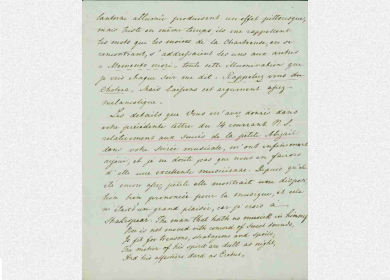 lanterne allumée produisent un effet pittoresque,
mais triste en même temps ils me rappellent
les mots que les moines de la Chartreuse, en se
rencontrant, s'addressaient les uns aux autres
"Memento mori. toute cette illumination que
je vois chaque soir me dit. Rappelez vous du
Cholera, Mais laissons cet argument assez
mélancolique.
Les details que Vous m'avez donnés dans
votre précédente lettre du 14 courant N. S.
relativement aux succès de la petite Abigail
dans votre soirée musicale, m'ont infiniment
rejoui, et je ne doute pas que nous en ferons
d'elle une excellente musicienne. Depuis qu'elle
ete encore assez petite elle montrait une dispos
tion bien prononcée pour la musique, et cela
m faisait un grand plaisir, car je crois à
Shakespear. The man that hath no musick in
Nor is not moved with concord of sweet sounds,
Is fit for treasons, stratagems and spoils,
The motion of his spirit are dull as night,
And his affections dark as Erebus,